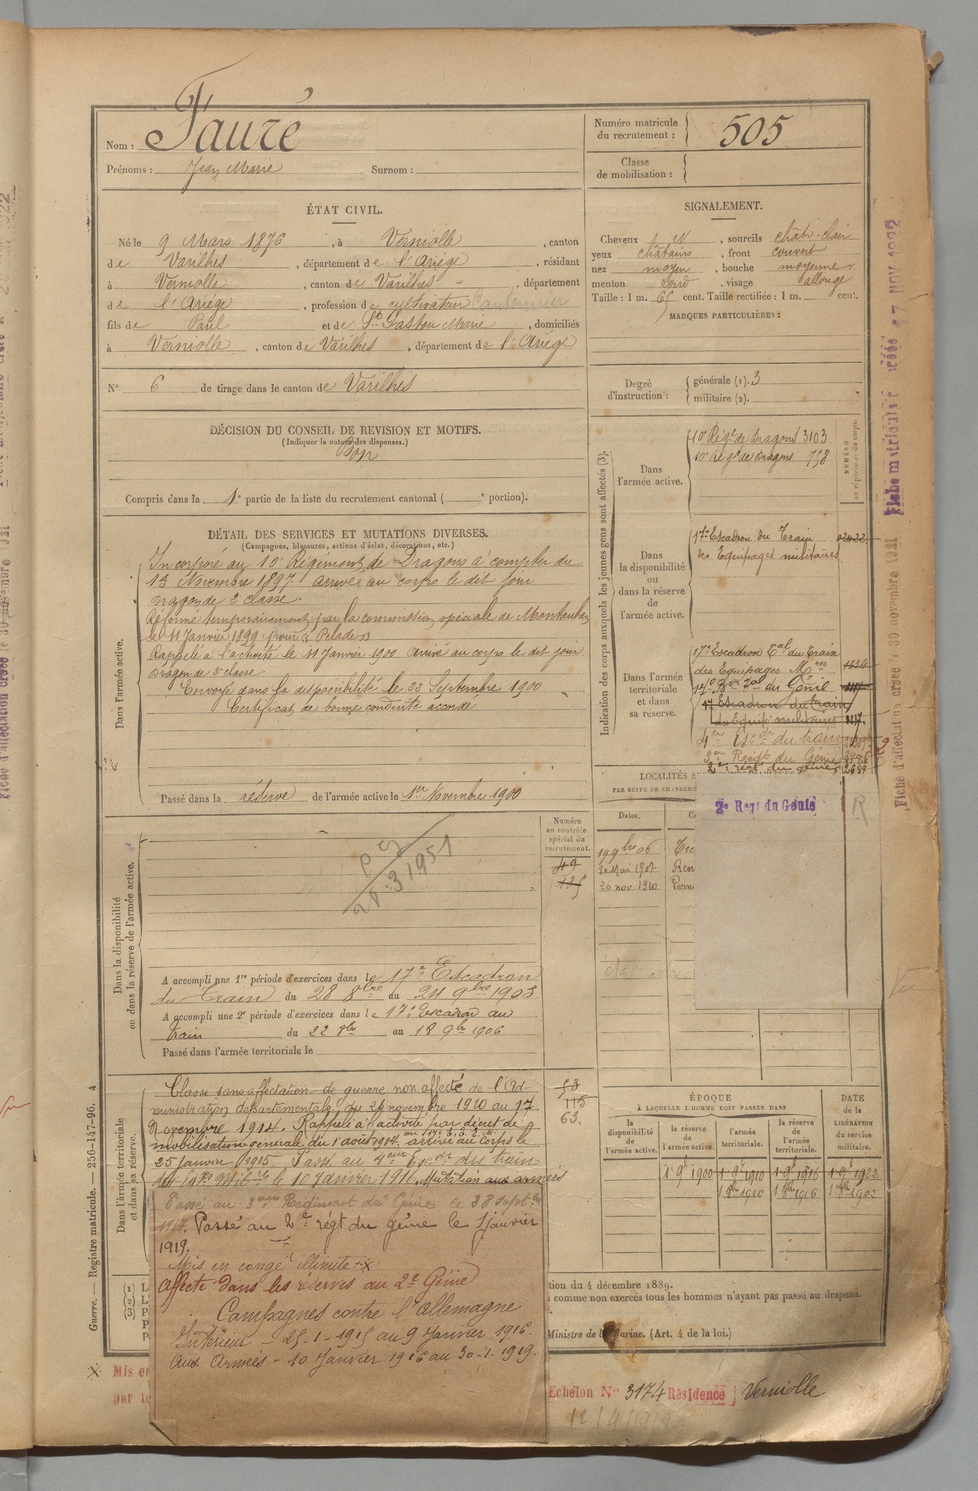 Nom : Fauré
Prénoms : Jean Marie Surnom :
Numéro matricule du recrutement : 505
Classe de mobilisation :
ÉTAT CIVIL.
Né le 9 Mars 1876, à Verniolle, canton
de Varilhes, département de l'Ariège, résidant
à Verniolle, canton de Varilhes, département
de l'Ariège, profession de cultivateur
fils de Paul et de Gaston Marie, domiciliés
à Verniolle, canton de Varilhes, département de l'Ariège
N° 6 de tirage dans le canton de Varilhes
SIGNALEMENT.
Cheveux, sourcils chât. clair
yeux châtains, front couvert
nez moyen, bouche moyenne
menton rond, visage allongé
Taille : 1 m. 65 cent. Taille rectifiée : 1 m. cent.
MARQUES PARTICULIÈRES :
Degré d'instruction : générale (1). 3
militaire (2).
DÉCISION DU CONSEIL DE REVISION ET MOTIFS.
(Indiquer la nature des dispenses.)
Bon
Compris dans la 1e partie de la liste du recrutement cantonal ( e portion).
DÉTAIL DES SERVICES ET MUTATIONS DIVERSES.
(Campagnes, blessures, actions d'éclat, décorations, etc.)
Dans l'armée active.
Incorporé au 10e Régiment de Dragons à compter du
13 Novembre 1897 arrivé au corps le dit jour
Dragon de 2e classe.
Réformé temporairement par la commission spéciale de Montauban
le 11 Janvier 1899 pour Pelade
Rappelé à l'activité le 11 Janvier 1900 Arrivé au corps le dit jour
Dragon de 2e classe
Envoyé dans la disponibilité le 22 Septembre 1900
Certificat de bonne conduite accordé
Passé dans la réserve de l'armée active le 1er Novembre 1900
Indication des corps auxquels les jeunes gens sont affectés (3).
NUMÉRO
Dans l'armée active.
10e Régt de Dragons 3103
10e Régt de Dragons 758
Dans la disponibilité ou dans la réserve de l'armée active.
17e Escadron du Train
des Equipages militaires
Dans l'armée territoriale et dans sa réserve.
17e Escadron Tal du Train
des Equipages Mres
17e Bon Tal du Génie
17e Escadron du train
des Equip. militaires
4er Escon du train
3e Régt du Génie
2e regt du génie 2699
LOCALITÉS
PAR SUITE DE CHANGEMEN
Dates.
19 9bre 06
2 Mai 1908
20 nov. 1910
2e Regt du Génie
R
Dans la disponibilité ou dans la réserve de l'armée active.
Numéro au contrôle spécial du recrutement.
20.3 1951
A accompli une 1re période d'exercices dans le 17e Escadron
du Train du 28 8bre au 24 9bre 1903
A accompli une 2e période d'exercices dans le 17e Escadron du
train du 22 8bre au 18 9bre 1906
Passé dans l'armée territoriale le
Dans l'armée territoriale et dans sa réserve.
Classé sans affectation de guerre non affecté de l'Ad-
ministration départementale du 24 novembre 1910 au 17
Novembre 1914. Rappelé à l'activité par décret de
mobilisation générale du 1 août 1914. arrivé au corps le
25 Janvier 1915. Passé au Escdr du train
le 10 Janvier 1916 Mutation aux armées
Passé au 3eme Régiment du Génie le 28 Septbre
1917. Passé au 2e régt du génie le 1 janvier
1919.
Mis en congé illimité X
Affecté dans les réserves au 2e Génie
Campagnes contre l'allemagne
Intérieur - 25-1-1915 au 9 Janvier 1916.
Aux Armées - 10 Janvier 1916 au 30-1-1919.
53
115
63.
ÉPOQUE
À LAQUELLE L'HOMME DOIT PASSER DANS
DATE de la LIBÉRATION du service militaire.
la disponibilité de l'armée active.
la réserve de l'armée active.
l'armée territoriale.
la réserve de l'armée territoriale.
1er 9bre 1900
1-9bre 1910
1-9bre 1916
1-9bre 1922
1-9bre 1910
1-9bre 1916
1-9bre 1922
tion du 4 décembre 1889.
comme non exercés tous les hommes n'ayant pas passé au drapeau.
Ministre de la Marine. (Art. 4 de la loi.)
X Mis en
par le
Echelon N° 3174 Résidence Verniolle
Guerre. — Registre matricule. — 256-147-96. 4
Fiche matricule créée 17 NOV 1922
Fiche d'affectation créée : 30 novembre 1941